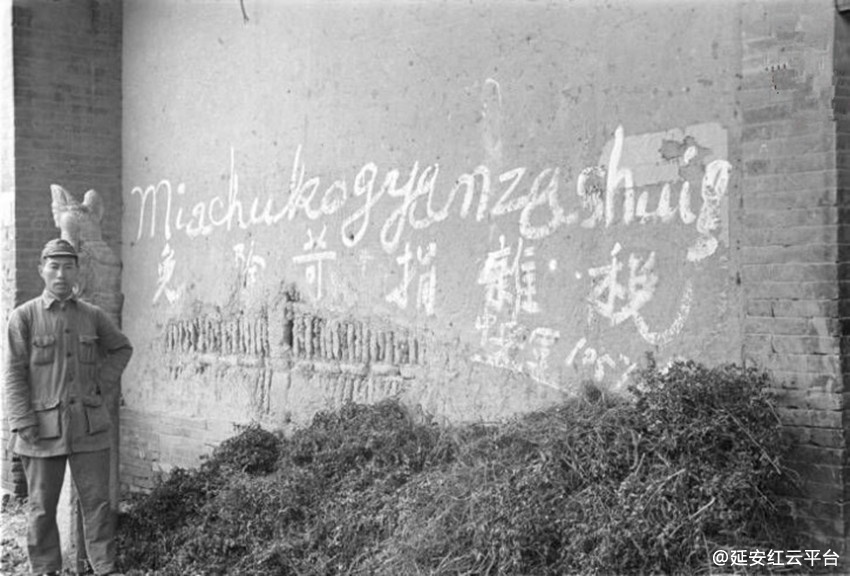 Miachukogyanzashuig
免除苛捐雜稅
@延安红云平台